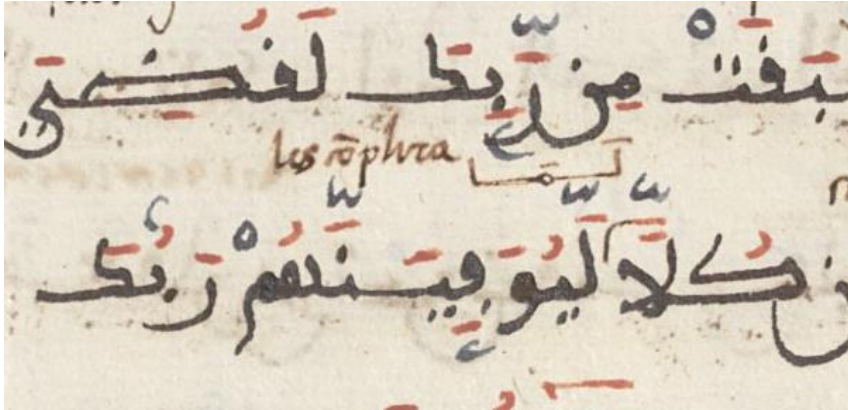 بَقَتْ مِن رَّبِّكَ لَقُضِيَ
les cōplira لَمَّا
كُلًّا لَّيُوَفِّيَنَّهُمْ رَبُّكَ